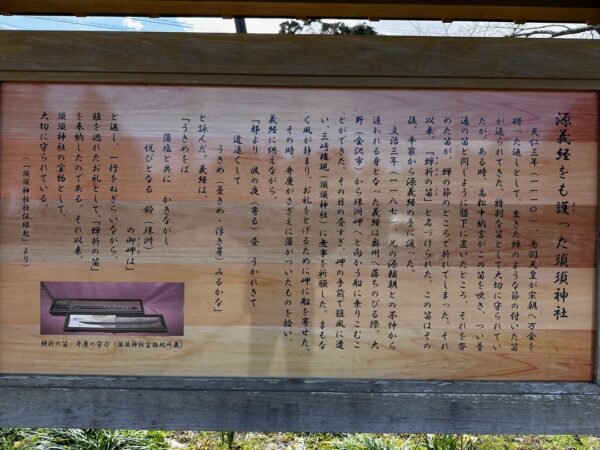 源義経をも護った須須神社
天仁三年(一一一〇)、鳥羽天皇が宋朝へ万金を
贈った返しとして、生きた蝉のような節の付いた笛
が送られてきた。特別な笛として大切に守られてい
たが、ある時、高松中納言がこの笛を吹き、つい普
通の笛と同じように膝下に置いたところ、それを咎
めた笛が、蝉の節のところで折れてしまった。それ
以来、「蝉折の笛」と名づけられた。この笛はその
後、平家から源義経の手に渡った。
文治三年(一一八七)、兄の源頼朝との不仲から
追われる身となった義経は奥州へ落ちのびる際、大
野(金沢市)から珠洲岬へと向かう船に乗りこむこ
とができた。その日の昼すぎ、岬の手前で疾風に遭
い、三崎権現(須須神社)に無事を祈願した。まもな
く風が静まり、お礼をとげるために岬に船を寄せた。
その時、弁慶がさざえに藻がついたものを拾い、
義経に供えながら、
「都より 波の夜(寄る)昼 うかれきて
道遠くして
うきめ(憂きめ・浮き芽)みるかな」
と詠んだ。義経は、
「うきめをば
藻塩と共に かきながし
悦びとなる 鈴(珠洲)
の御岬は」
と返し、一行をねぎらいながら、
難を逃れたお礼として、「蝉折の笛」
を奉納したのである。それ以来、
須須神社の宝物として、
大切に守られている。
(「須須神社社伝縁起」より)
蝉折の笛・弁慶の守刀(須須神社宝物殿所蔵)